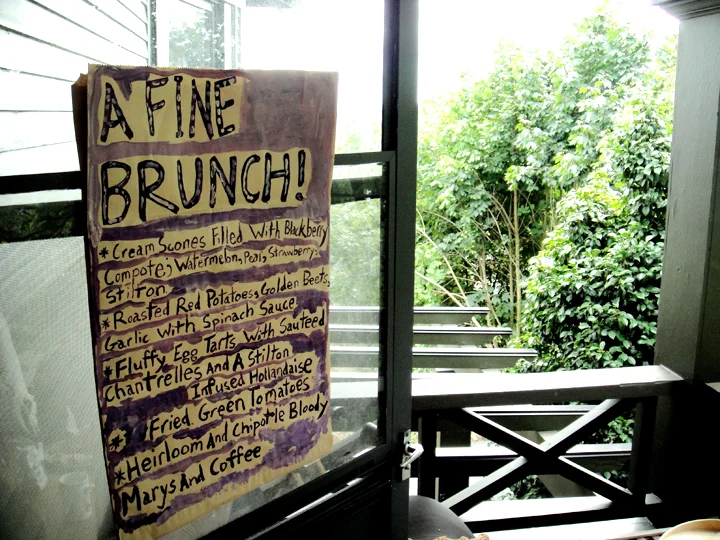 A FINE
BRUNCH!
* Cream Scones Filled With Blackberry
Compote; Watermelon, Pear, Strawberry,
Stilton
* Roasted Red Potatoes, Golden Beets,
Garlic With Spinach Sauce
* Fluffy Egg Tarts With Sauteed
Chantrelles And A Stilton
Infused Hollandaise
* Fried Green Tomatoes
* Heirloom And Chipotle Bloody
Marys And Coffee